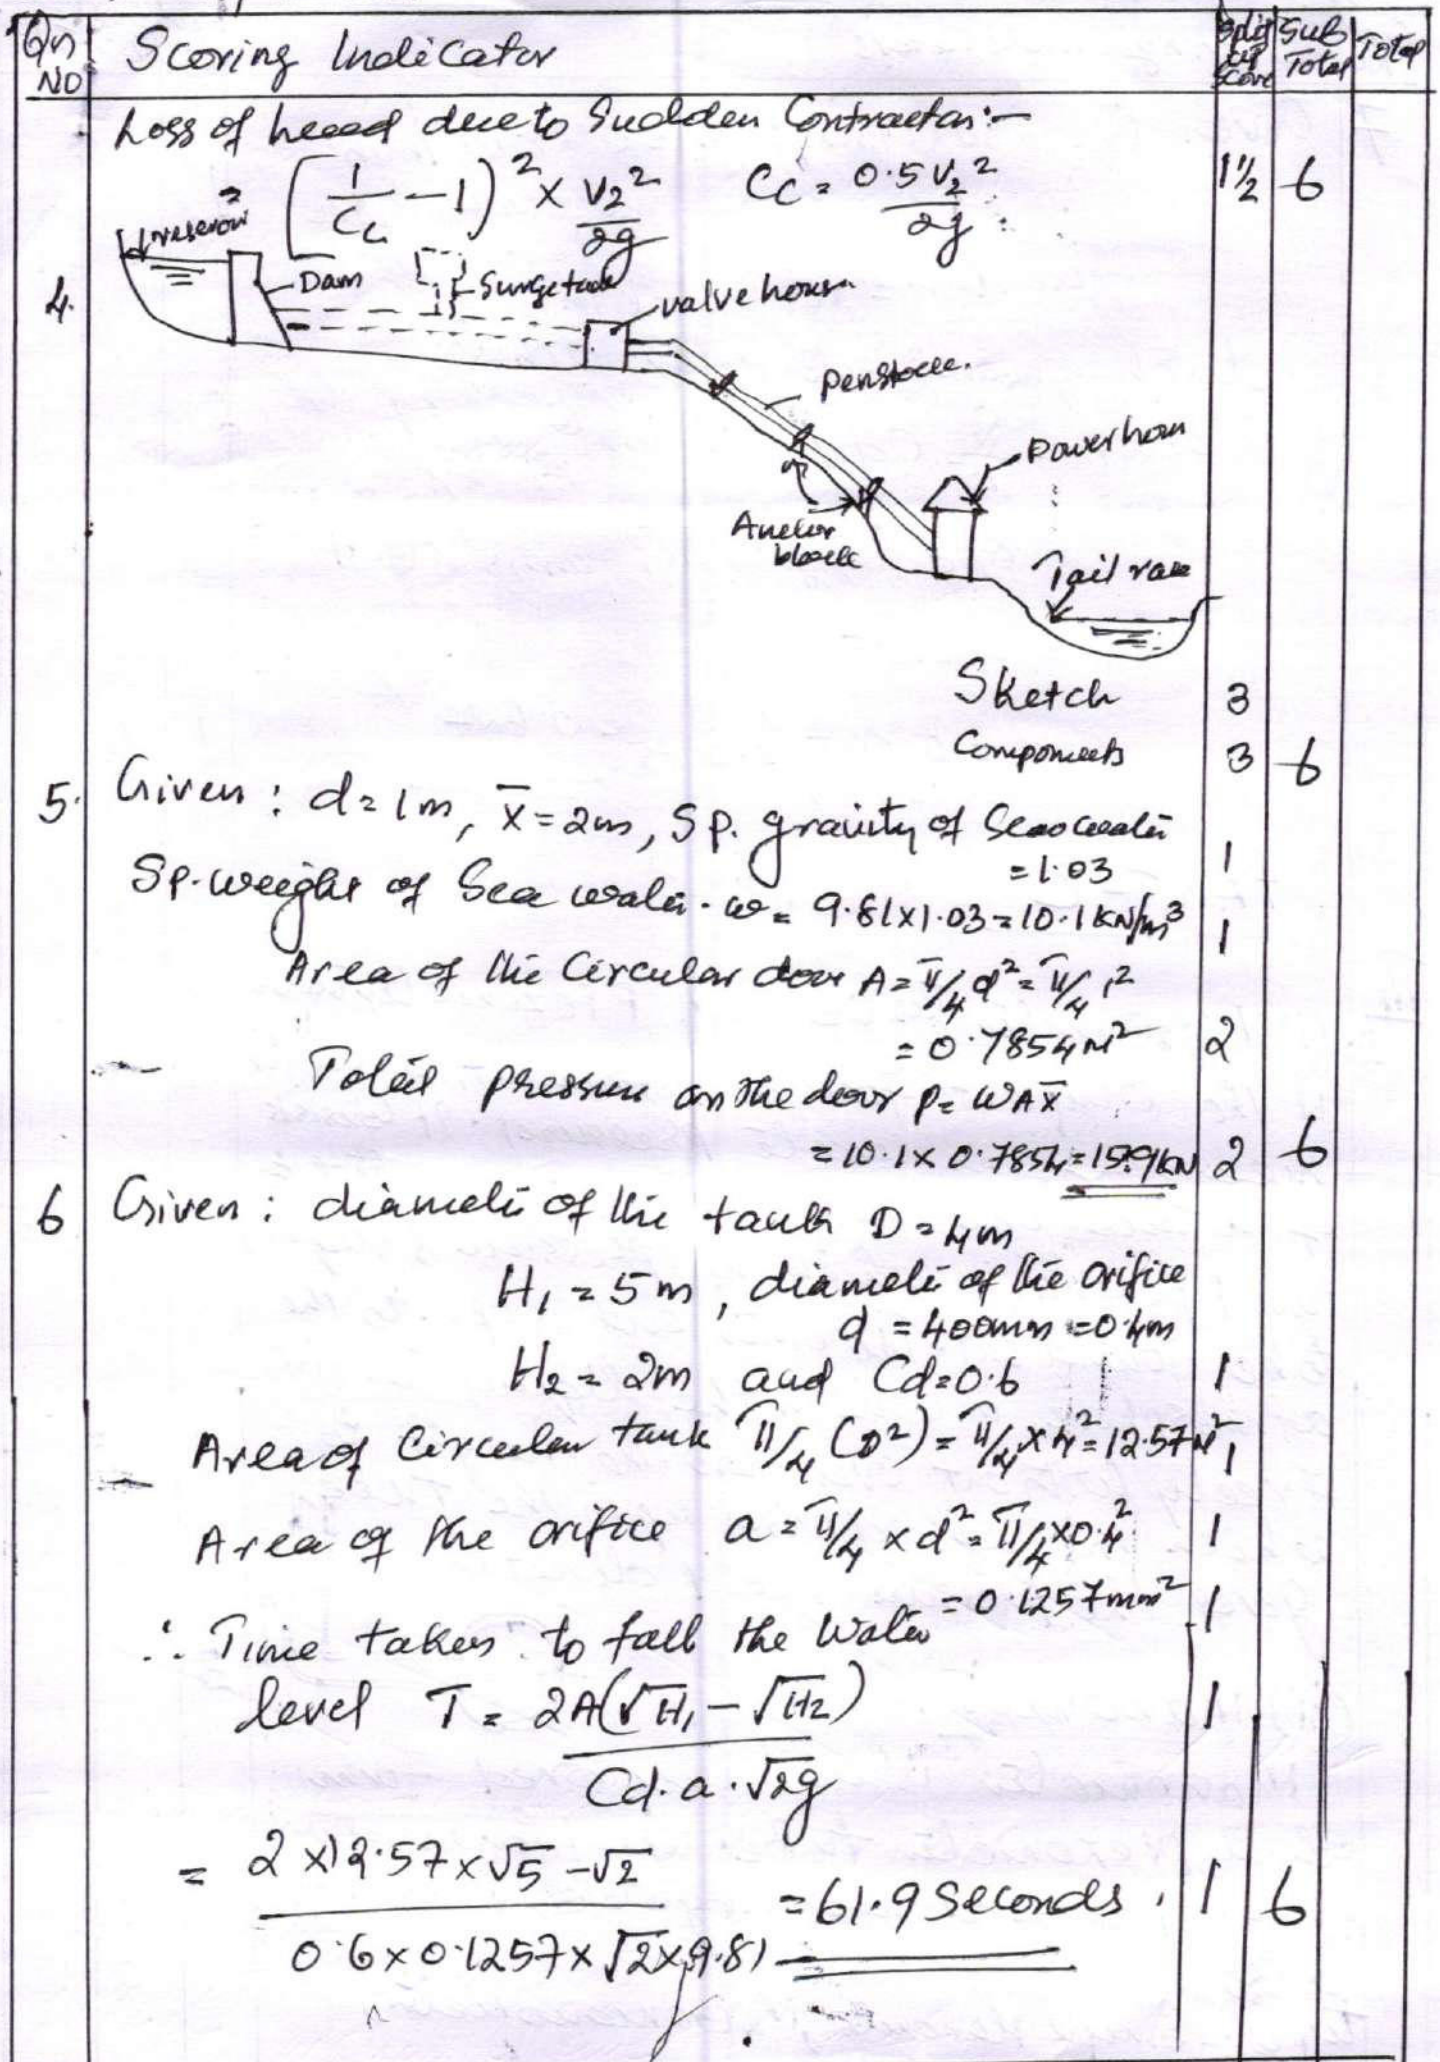 Qn NO Scoring Indicator Split up Score Sub Total Total
Loss of head due to Sudden Contraction:-
= (1/Cc - 1)² × V₂²/2g Cc = 0.5 V₂²/2g 1½ 6
4.
reservoir
Dam
Surge tank
valve house
Penstock.
Power house
Anchor block
Tail race
Sketch 3
Components 3 6
5. Given : d = 1m, x̄ = 2m, Sp. gravity of Sea water
= 1.03 1
Sp. weight of Sea water. w = 9.81×1.03 = 10.1 KN/m³ 1
Area of the Circular door A = π/4 d² = π/4 1²
= 0.7854 m² 2
Total pressure on the door P = wAx̄
= 10.1 × 0.7854 = 15.9 KN 2 6
6 Given : diameter of the tank D = 4m
H₁ = 5m, diameter of the orifice
d = 400mm = 0.4m
H₂ = 2m and Cd = 0.6 1
Area of Circular tank π/4 (D²) = π/4 × 4² = 12.57 M² 1
Area of the orifice a = π/4 × d² = π/4 × 0.4² 1
= 0.1257 mm² 1
∴ Time taken to fall the Water
level T = 2A(√H₁ - √H₂) 1
Cd. a. √2g
= 2 × 12.57 × √5 - √2 = 61.9 Seconds. 1 6
0.6 × 0.1257 × √2×9.81